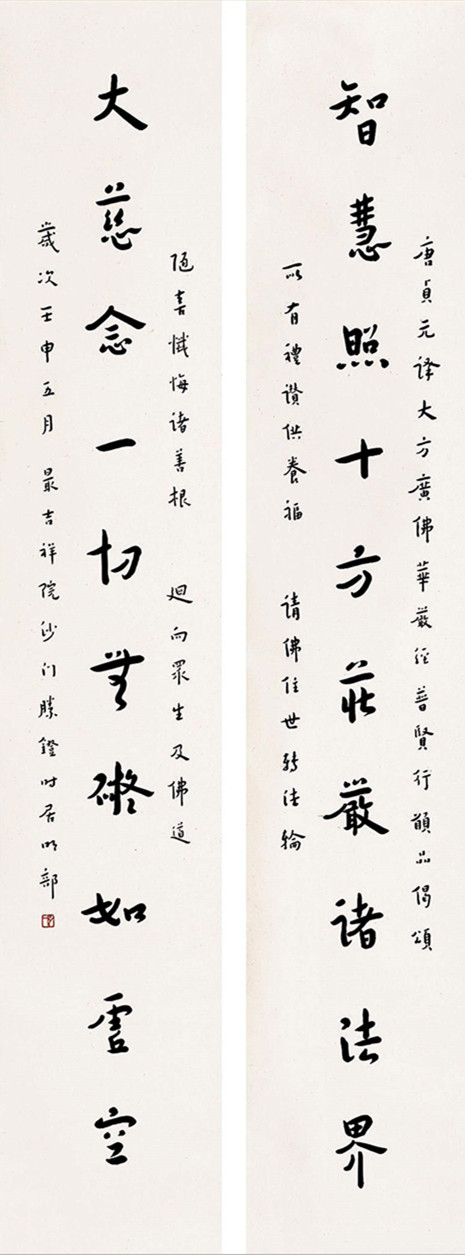 唐貞元譯大方廣佛華嚴經普賢行願品偈頌
智慧照十方莊嚴諸法界
所有禮讚供養福 請佛住世轉法輪
隨喜懺悔諸善根 迴向眾生及佛道
大慈念一切無礙如虛空
歲次壬申五月 最吉祥院沙門勝鐙時居明部